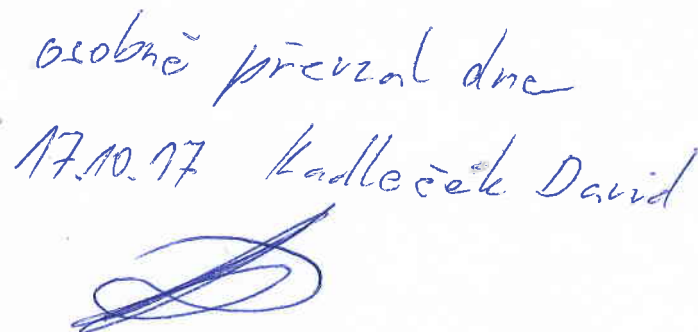 osobně převzal dne
17.10.17 Kadleček David